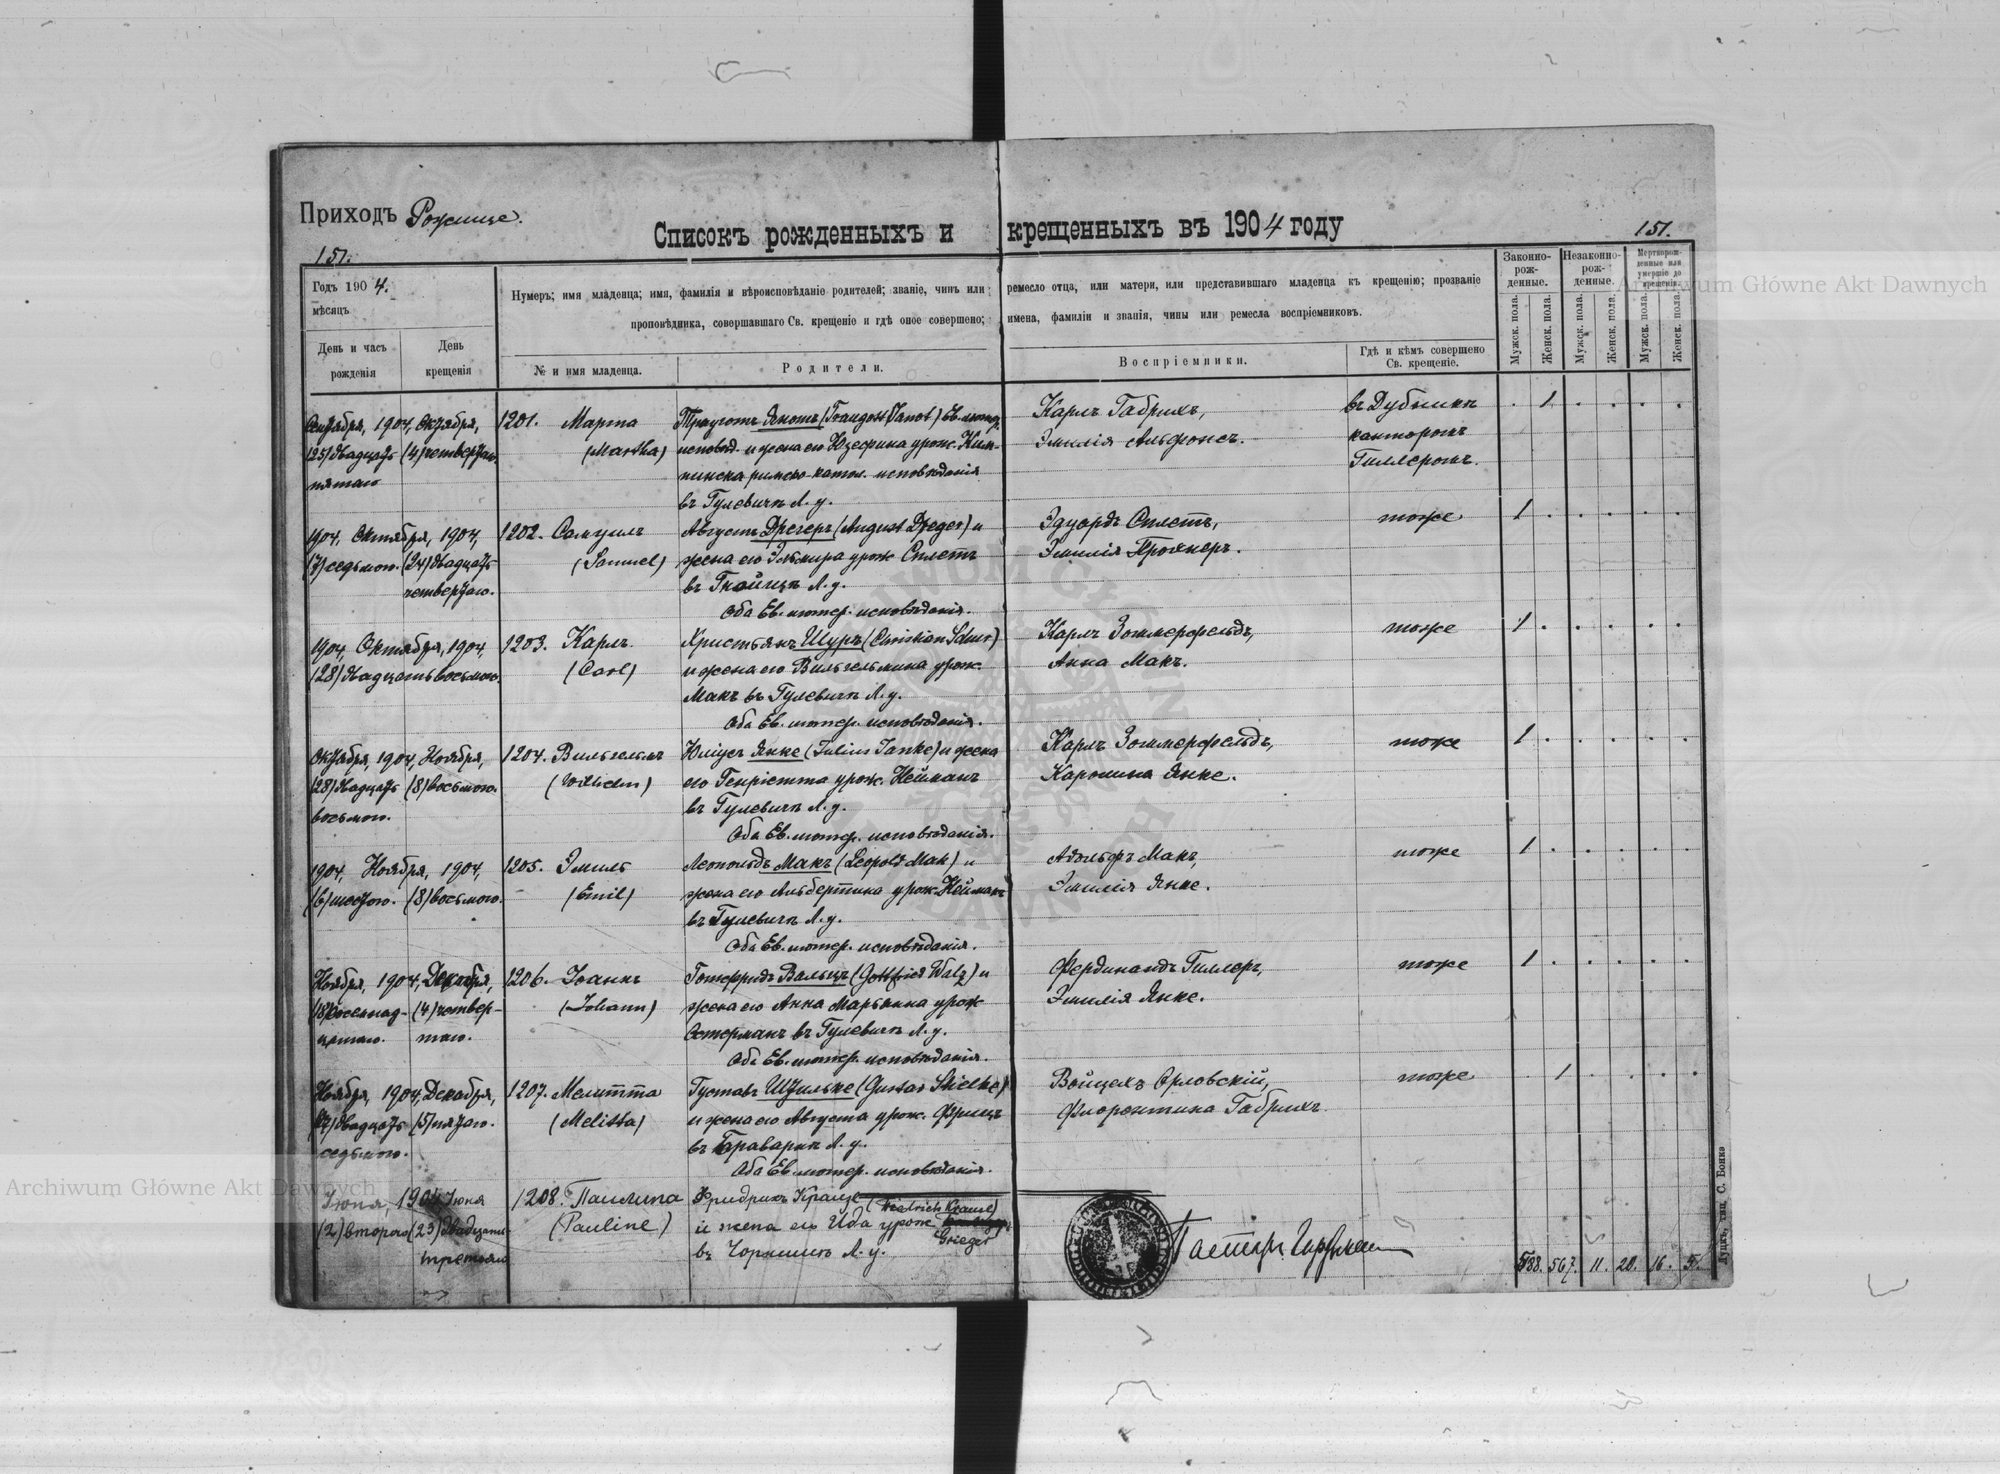 Приходъ Рожище.
Списокъ рожденныхъ и крещенныхъ въ 1904 году
151.
151.
Годъ 1904.
мѣсяцъ
День и часъ рожденія
День крещенія
Нумеръ; имя младенца; имя, фамилія и вѣроисповѣданіе родителей; званіе, чинъ или ремесло отца, или матери, или представившаго младенца къ крещенію; прозваніе
проповѣдника, совершавшаго Св. крещеніе и гдѣ оное совершено; имена, фамиліи и званія, чины или ремесла воспріемниковъ.
№ и имя младенца.
Родители.
Воспріемники.
Гдѣ и кѣмъ совершено Св. крещеніе.
Законно-рож-денные.
Незаконно-рож-денные.
Мертворож-денные или умершіе до крещенія.
Мужск. пола.
Женск. пола.
Мужск. пола.
Женск. пола.
Мужск. пола.
Женск. пола.
1904, Октября,
(25) двадцать (4) четвертаго
пятаго
1201. Марта
(Martha)
Трауготъ Янотъ (Traugott Janot) Ев. лютер.
исповѣд. и жена его Юзефина урож.
римско-катол. исповѣданія
въ Гулевичѣ Л. у.
Карлъ Габрихъ,
Эмилія Альфонсъ.
въ Дубникѣ
канторомъ
Гиллеромъ.
1
1904, Октября, 1904,
(7) седьмого. (24) двадцать
четвертаго.
1202. Самуилъ
(Samuel)
Августъ Дрегеръ (August Dreger) и
жена его Эльмира урож. Сплетъ
въ Гнойнцѣ Л. у.
Оба Ев. лютер. исповѣданія.
Эдуардъ Сплетъ,
Эмилія
тоже
1
1904, Октября, 1904,
(28) двадцать восьмого.
1203. Карлъ
(Carl)
Христьянъ Шуръ (Christian Schur)
и жена его Вильгельмина урож.
Макъ въ Гулевичѣ Л. у.
Оба Ев. лютер. исповѣданія.
Карлъ Зоммерфельдъ,
Анна Макъ.
тоже
1
Октября, 1904, Ноября,
(28) двадцать (8) восьмого.
восьмого.
1204. Вильгельмъ
(Wilhelm)
Юліусъ Янке (Julius Janke) и жена
его Генріетта урож. Нейманъ
въ Гулевичѣ Л. у.
Оба Ев. лютер. исповѣданія.
Карлъ Зоммерфельдъ,
Каролина Янке.
тоже
1
1904, Ноября, 1904,
(6) шестого. (8) восьмого.
1205. Эмиль
(Emil)
Леопольдъ Макъ (Leopold Mak) и
жена его Альбертина урож. Нейманъ
въ Гулевичѣ Л. у.
Оба Ев. лютер. исповѣданія.
Адольфъ Макъ,
Эмилія Янке.
тоже
1
Ноября, 1904, Декабря,
(18) восемнад- (4) четвер-
цатаго. таго.
1206. Іоаннъ
(Johann)
Готфридъ Вальцъ (Gottfried Walz) и
жена его Анна Марьянна урож.
Остерманъ въ Гулевичѣ Л. у.
Оба Ев. лютер. исповѣданія.
Фердинандъ Гиллеръ,
Эмилія Янке.
тоже
1
Ноября, 1904, Декабря,
(27) двадцать (5) пятаго.
седьмого.
1207. Мелитта
(Melitta)
Густавъ Штильке (Gustav Stielke)
и жена его Августа урож. Фрицъ
въ Браваркѣ Л. у.
Оба Ев. лютер. исповѣданія.
Войцехъ Орловскій,
Флорентина Габрихъ.
тоже
1
Іюня, 1904 Іюня
(2) второго (23) двадцать
третьяго
1208. Паулина
(Pauline)
Фридрихъ Краузе (Friedrich Krause)
и жена его Ида урож.
Grieger
въ Чорнишѣ Л. у.
Пасторъ
588. 567. 11. 20. 16. 5.
Луцкъ, тип. С. Бонка
Archiwum Główne Akt Dawnych
Archiwum Główne Akt Dawnych